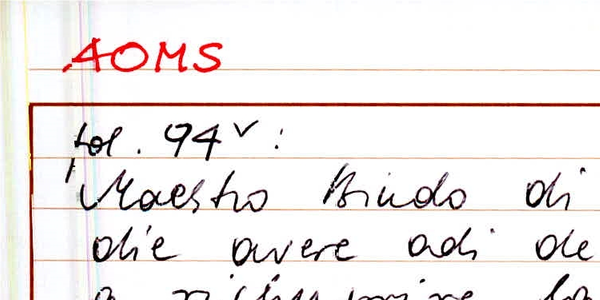 AOMS
fol. 94v:
Maestro Bindo di
die avere adi de
a